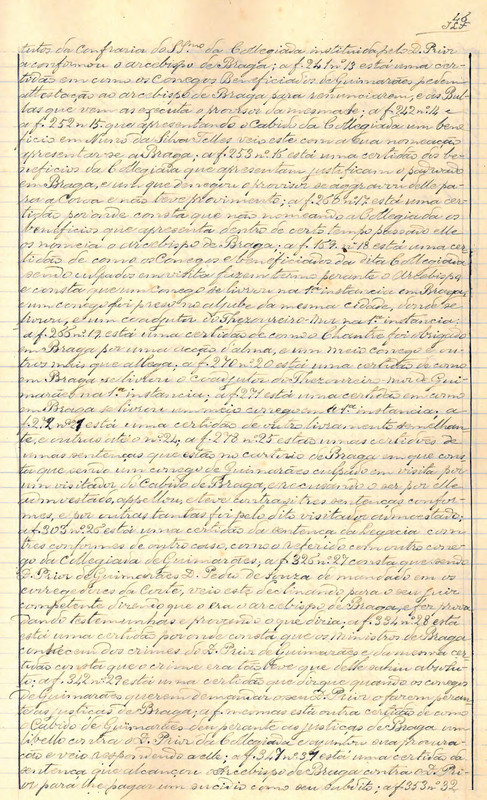 tutos da Confraria do SS.mo da Collegiada instituida pelo D. Prior
a confirmou o arcebispo de Braga; a f. 241 nº 13 está uma cer-
tidão em como os Conegos Beneficiados de Guimarães pedem
attestação ao arcebispo de Braga para renunciarem, e as Bul-
las que vem as executa o provisor da mesma sé; a f. 242 nº 14 e
a f. 252 nº 15 que apresentando o Cabido da Collegiada um bene-
ficio em Nuno da Silva Telles veio este com a sua nomeação
apresentar-se a Braga; a f. 253 nº 15 está uma certidão dos be-
neficios da Collegiada que apresentam justificam o
em Braga, e um que denegou o provisor se aggravou delle pa-
ra a Coroa e não teve provimento; a f. 256 nº 17 está uma cer-
tidão por onde consta que não nomeando a Collegiada os
beneficios que apresenta dentro de certo tempo passado elle
os nomeia o Arcebispo de Braga; a f. 157 nº 18 está uma cer-
tidão de como os Conegos e beneficiados da dita Collegiada
sendo culpados em visita fazem termo perante o Arcebispo
e consta que um conego se livrou na 1ª instancia em Braga,
e um conego foi preso no aljube da mesma cidade, donde se
livrou, e um coadjutor do Thezoureiro-Mor na 1ª instancia;
a f. 265 nº 19 está uma certidão de como o Chantre foi obrigado
em Braga por uma acção d'alma, e um meio conego e ou-
tros mais que allega; a f. 270 nº 20 está uma certidão de como
em Braga se livrou o coadjutor do Thezoureiro mor de Gui-
marães na 1ª instancia; a f. 271 está uma certidão em como
em Braga se livrou um meio conego em 1ª instancia; a
f. 272 nº 21 está uma certidão de outro livramento semelhan-
te, e outras até o nº 24; a f. 278 nº 25 estão umas certidões de
umas sentenças que estão no cartorio de Braga em que cons-
ta que sendo um conego de Guimarães culpado em visita por
um visitador do Cabido de Braga, e recusando o ser por elle
admoestado, appellou, e teve contra si tres sentenças confor-
mes, e por outras tantas foi pelo dito visitador admoestado;
a f. 303 nº 26 está uma certidão da sentença da legacia com
tres conformes de outro caso, como o referido com outro cone-
go da Collegiada de Guimarães; a f. 325 nº 27 consta que sendo
D. Prior de Guimarães D. Pedro de Souza demandado em os
corregedores da Corte, veio este declinando para o seu juiz
competente dizendo que o era o arcebispo de Braga, e foi prova
dando testemunhas e provando o que dizia; a f. 334 nº 28 está
está uma certidão por onde consta que os Ministros de Braga
conhecem dos crimes do D. Prior de Guimarães e da mesma cer-
tidão consta que o crime era tão leve que delle sahiu absolu-
to; a f. 342 nº 29 está uma certidão que diz que quando os conegos
de Guimarães querem demandar o seu D. Prior o fazem peran-
te as justiças de Braga; a f. mesma está outra certidão de como
o Cabido de Guimarães deu perante as justiças de Braga um
libello contra o D. Prior da Collegiada e ajuntou sua procura-
ção e veio respondendo a elle; a f. 347 nº 31 está uma certidão da
sentença que alcançou o Arcebispo de Braga contra o D. Pri-
or para lhe pagar um como seu subdito; a f. 353 nº 32